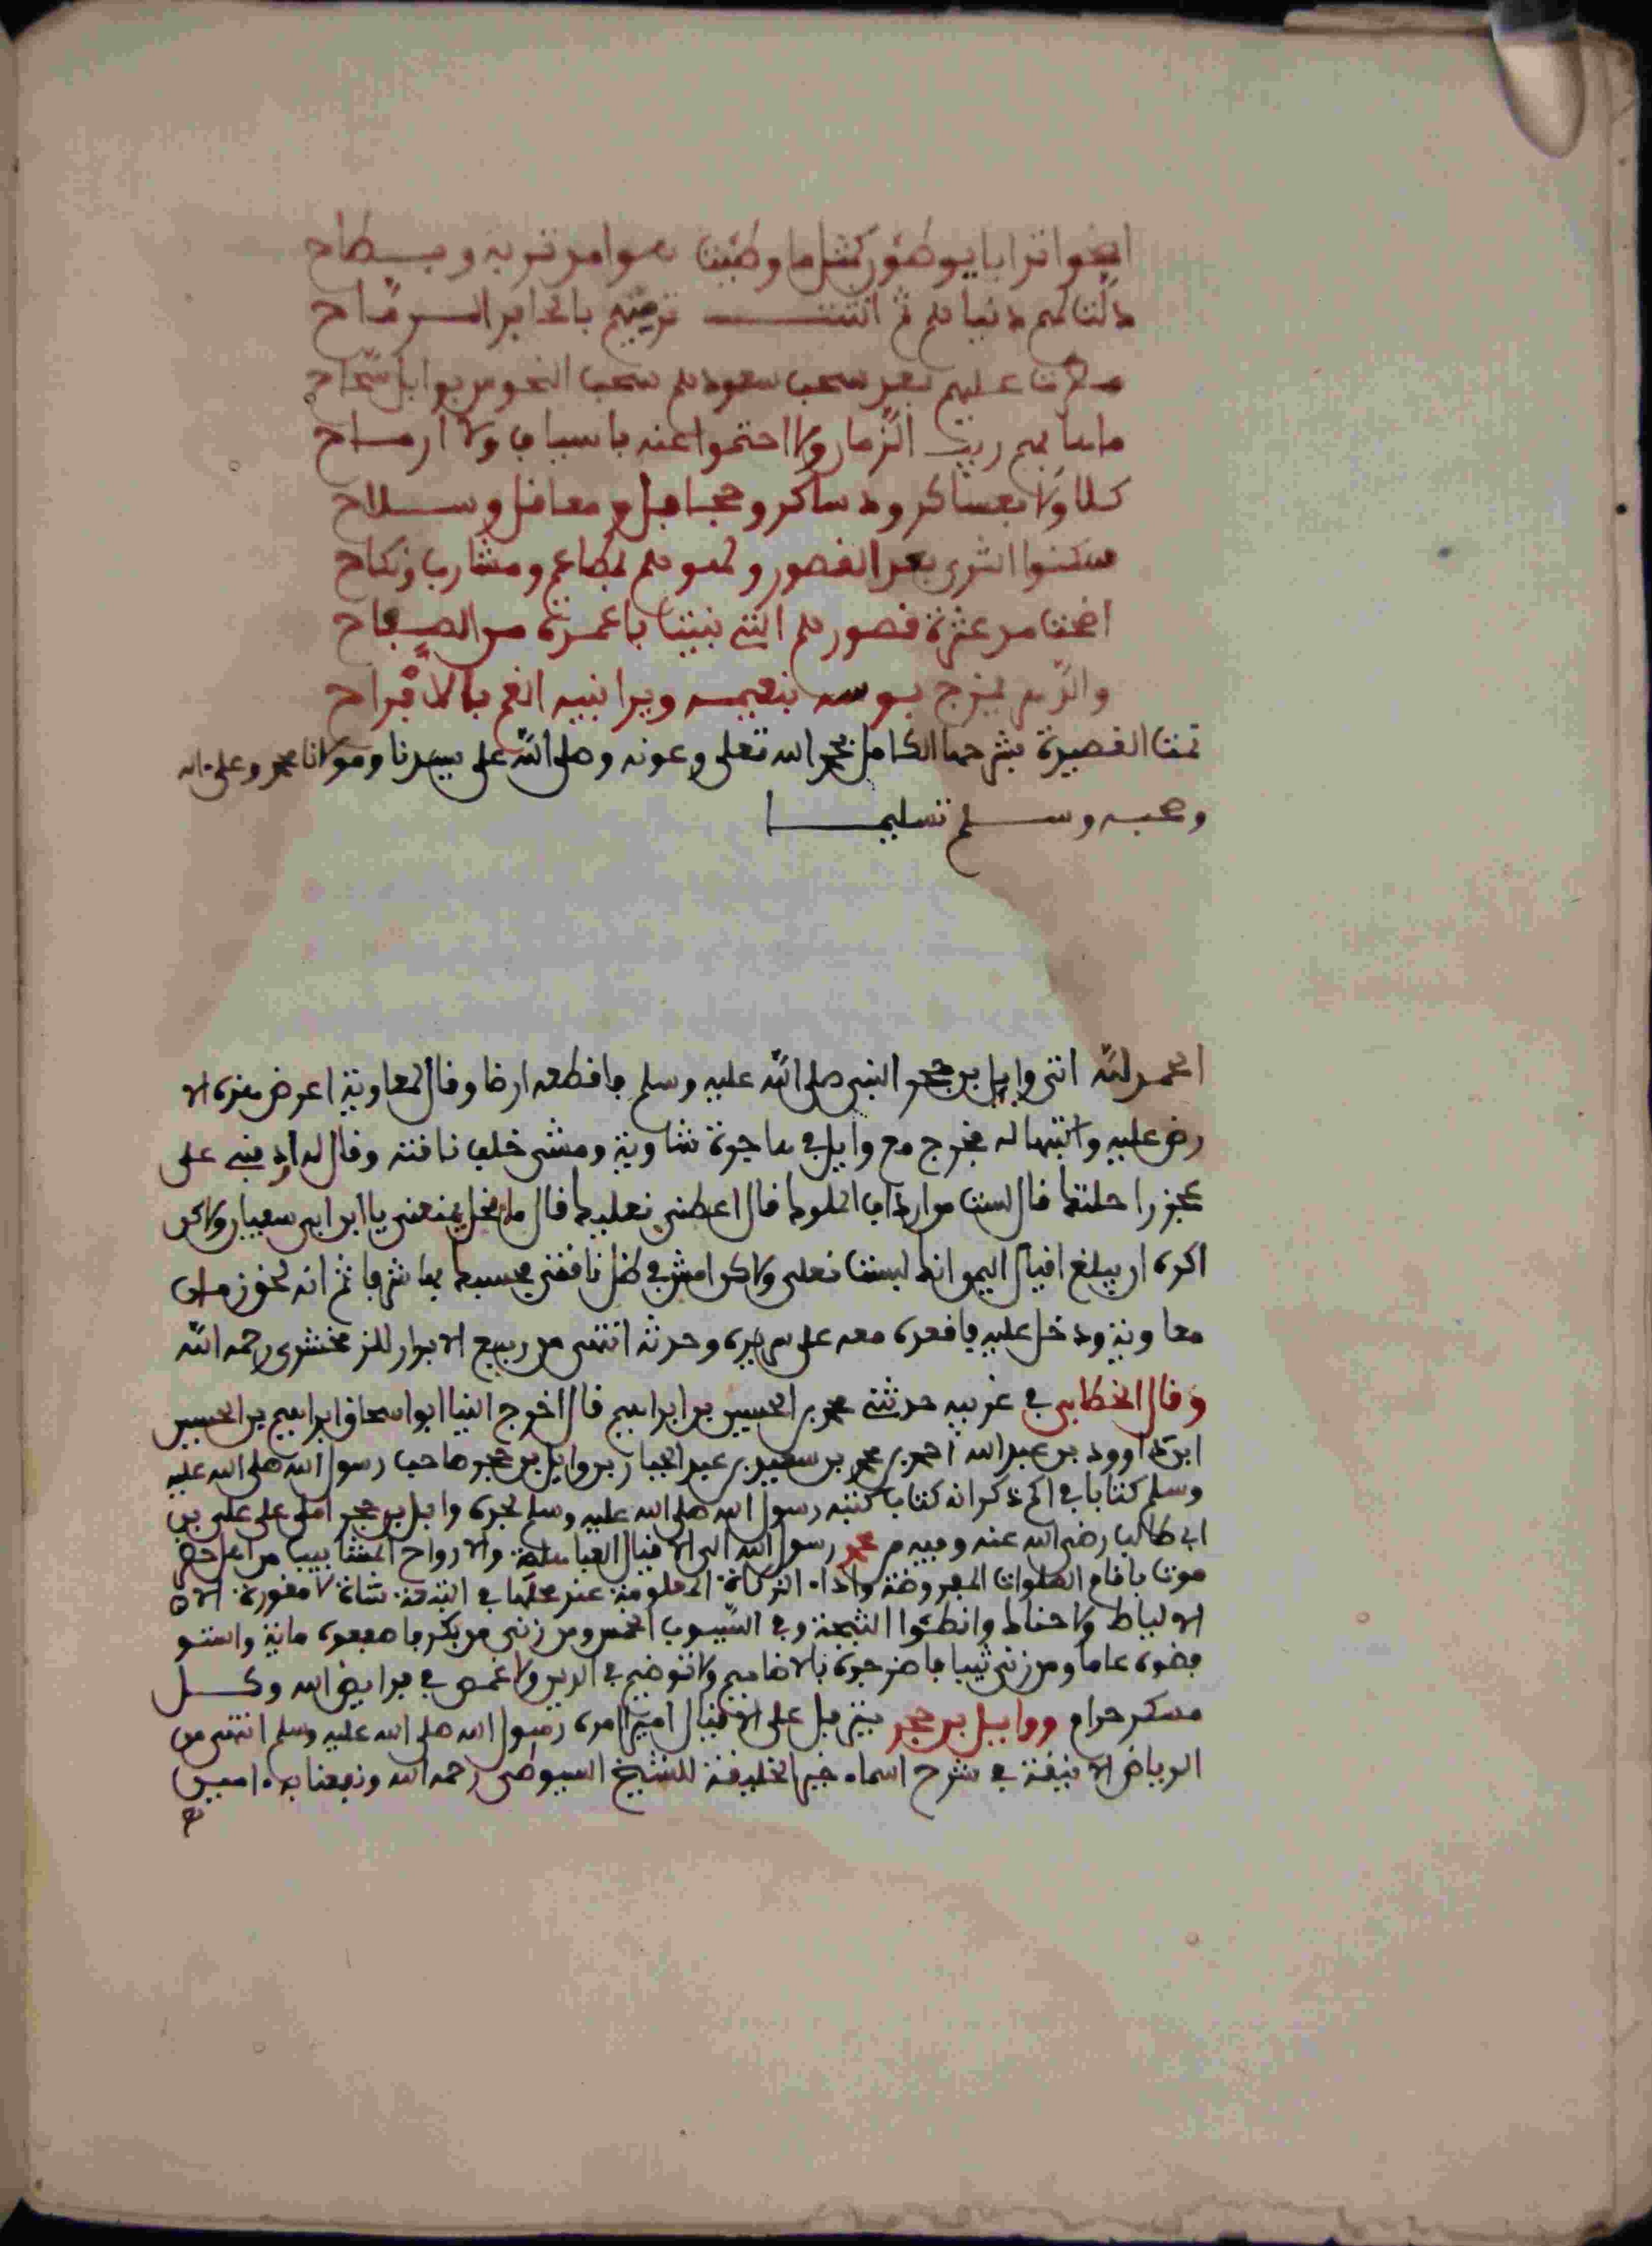 اضحوا ترابا يوطئون كمثل ما وطئت هوامد تربة وبطاح
ذلت لهم دنياهم ثم انثنت ترميهم بالحادث الرماح
مطرت عليهم بعد سحب سعودهم سحب النحوس بوابل سحاح
ما هابهم ريب الزمان ولا احتموا عنه باسياف ولا ارماح
كلا ولا بعساكر ودساكر وجحافل ومعاقل وسلاح
سكنوا الثرى بعد القصور ولهوهم بمطاعم ومشارب ونكاح
اضحت معثرة قصورهم التي بنيت باعمدة من الصفاح
والدهر يمزج بوسه بنعيمه ويرا بنيه الغم بالافراح
تمت القصيدة بشرحها الكامل بحمد الله تعلى وعونه وصلى الله على سيدنا ومولانا محمد وعلى ءاله
وصحبه وسلم تسليما
الحمد لله اتى وايل بن حجر النبي صلى الله عليه وسلم فاقطعه ارضا وقال لمعاوية اعرض هذه الا
رض عليه واكتبها له فخرج مع وايل في هاجرة شاوية ومشى خلف ناقته وقال له اردفني على
عجز راحلتك قال لست من ارداف الملوك قال اعطني نعليك قال ما بخل يمنعني يا ابن ابي سفيان ولاكن
اكره ان يبلغ اقيال اليمن انك لبست نعلي ولاكن امش في ظل ناقتي فحسبك بها شرفا ثم انه لحق زمان
معاوية ودخل عليه فاقعده معه على سريره وحدثه انتهى من ربيع الابرار للزمخشري رحمه الله
وقال الخطابي في غريبه حدثني محمد بن الحسين بن ابراهيم قال اخرج الينا ابو اسحاق ابراهيم بن الحسين
ابن داوود بن عبد الله احمد بن محمد بن سعيد بن عبد الجبار بن وايل بن حجر صاحب رسول الله صلى الله عليه
وسلم كتابا في اكم ذكر انه كتاب كتبه رسول الله صلى الله عليه وسلم لجده وايل بن حجر املى على علي بن
ابي طالب رضي الله عنه وفيه من محمد رسول الله الى الاقيال العباهلة والارواح المشابيب من اهل حضر
موت باقام الصلوات المفروضة واداء الزكاة المعلومة عند محلها في التيعة شاة لا مقورة الا
الالياط ولا ضناك وانطئوا الثبجة وفي السيوب الخمس ومن زنى من بكر فاصقعوه ماية واستو
فضوه عاما ومن زنى ثيبا فاضرجوه بالاضاميم ولا توصيم في الدين ولا غمص في فرايض الله وكل
مسكر حرام ووايل بن حجر يترفل على الاقيال اميرا امره رسول الله صلى الله عليه وسلم انتهى من
الرياض الانيقة في شرح اسماء خير الخليقة للشيخ السيوطي رحمه الله ونفعنا به ءامين